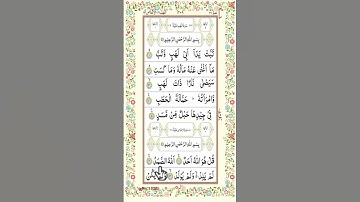 بِسْمِ اللّٰهِ الرَّحْمٰنِ الرَّحِيْمِ
تَبَّتْ يَدَآ اَبِيْ لَهَبٍ وَّتَبَّ
مَآ اَغْنٰى عَنْهُ مَالُهٗ وَمَا كَسَبَ
سَيَصْلٰى نَارًا ذَاتَ لَهَبٍ
وَّامْرَاَتُهٗ حَمَّالَةَ الْحَطَبِ
فِيْ جِيْدِهَا حَبْلٌ مِّنْ مَّسَدٍ
بِسْمِ اللّٰهِ الرَّحْمٰنِ الرَّحِيْمِ
قُلْ هُوَ اللّٰهُ اَحَدٌ اَللّٰهُ الصَّمَدُ
لَمْ يَلِدْ وَلَمْ يُوْلَدْ